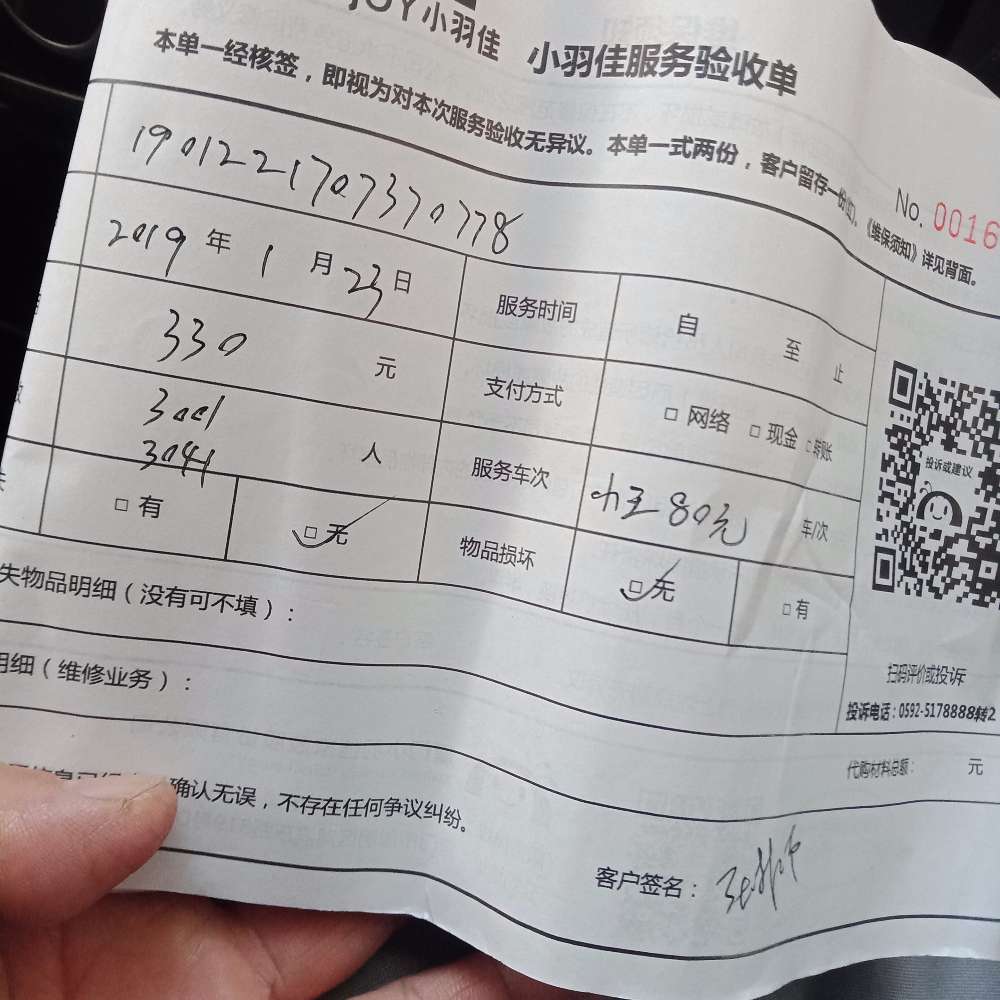 JOY小羽佳 小羽佳服务验收单
本单一经核签，即视为对本次服务验收无异议。本单一式两份，客户留存一份
《维保须知》详见背面。
No. 0016
1901221707370778
2019年1月23日 服务时间 自 至 止
330 元 支付方式 □ 网络 □ 现金 □ 转账
3001
3041 人 服务车次 小王80元 车/次
□ 有 □ 无 物品损坏 □ 无 □ 有
投诉或建议
扫码评价或投诉
投诉电话：0592-5178888转2
失物品明细（没有可不填）：
明细（维修业务）：
代购材料总额： 元
确认无误，不存在任何争议纠纷。
客户签名：